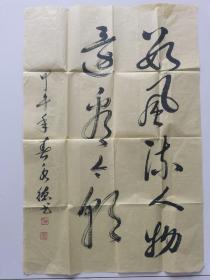 数风流人物
还看今朝
甲午年春